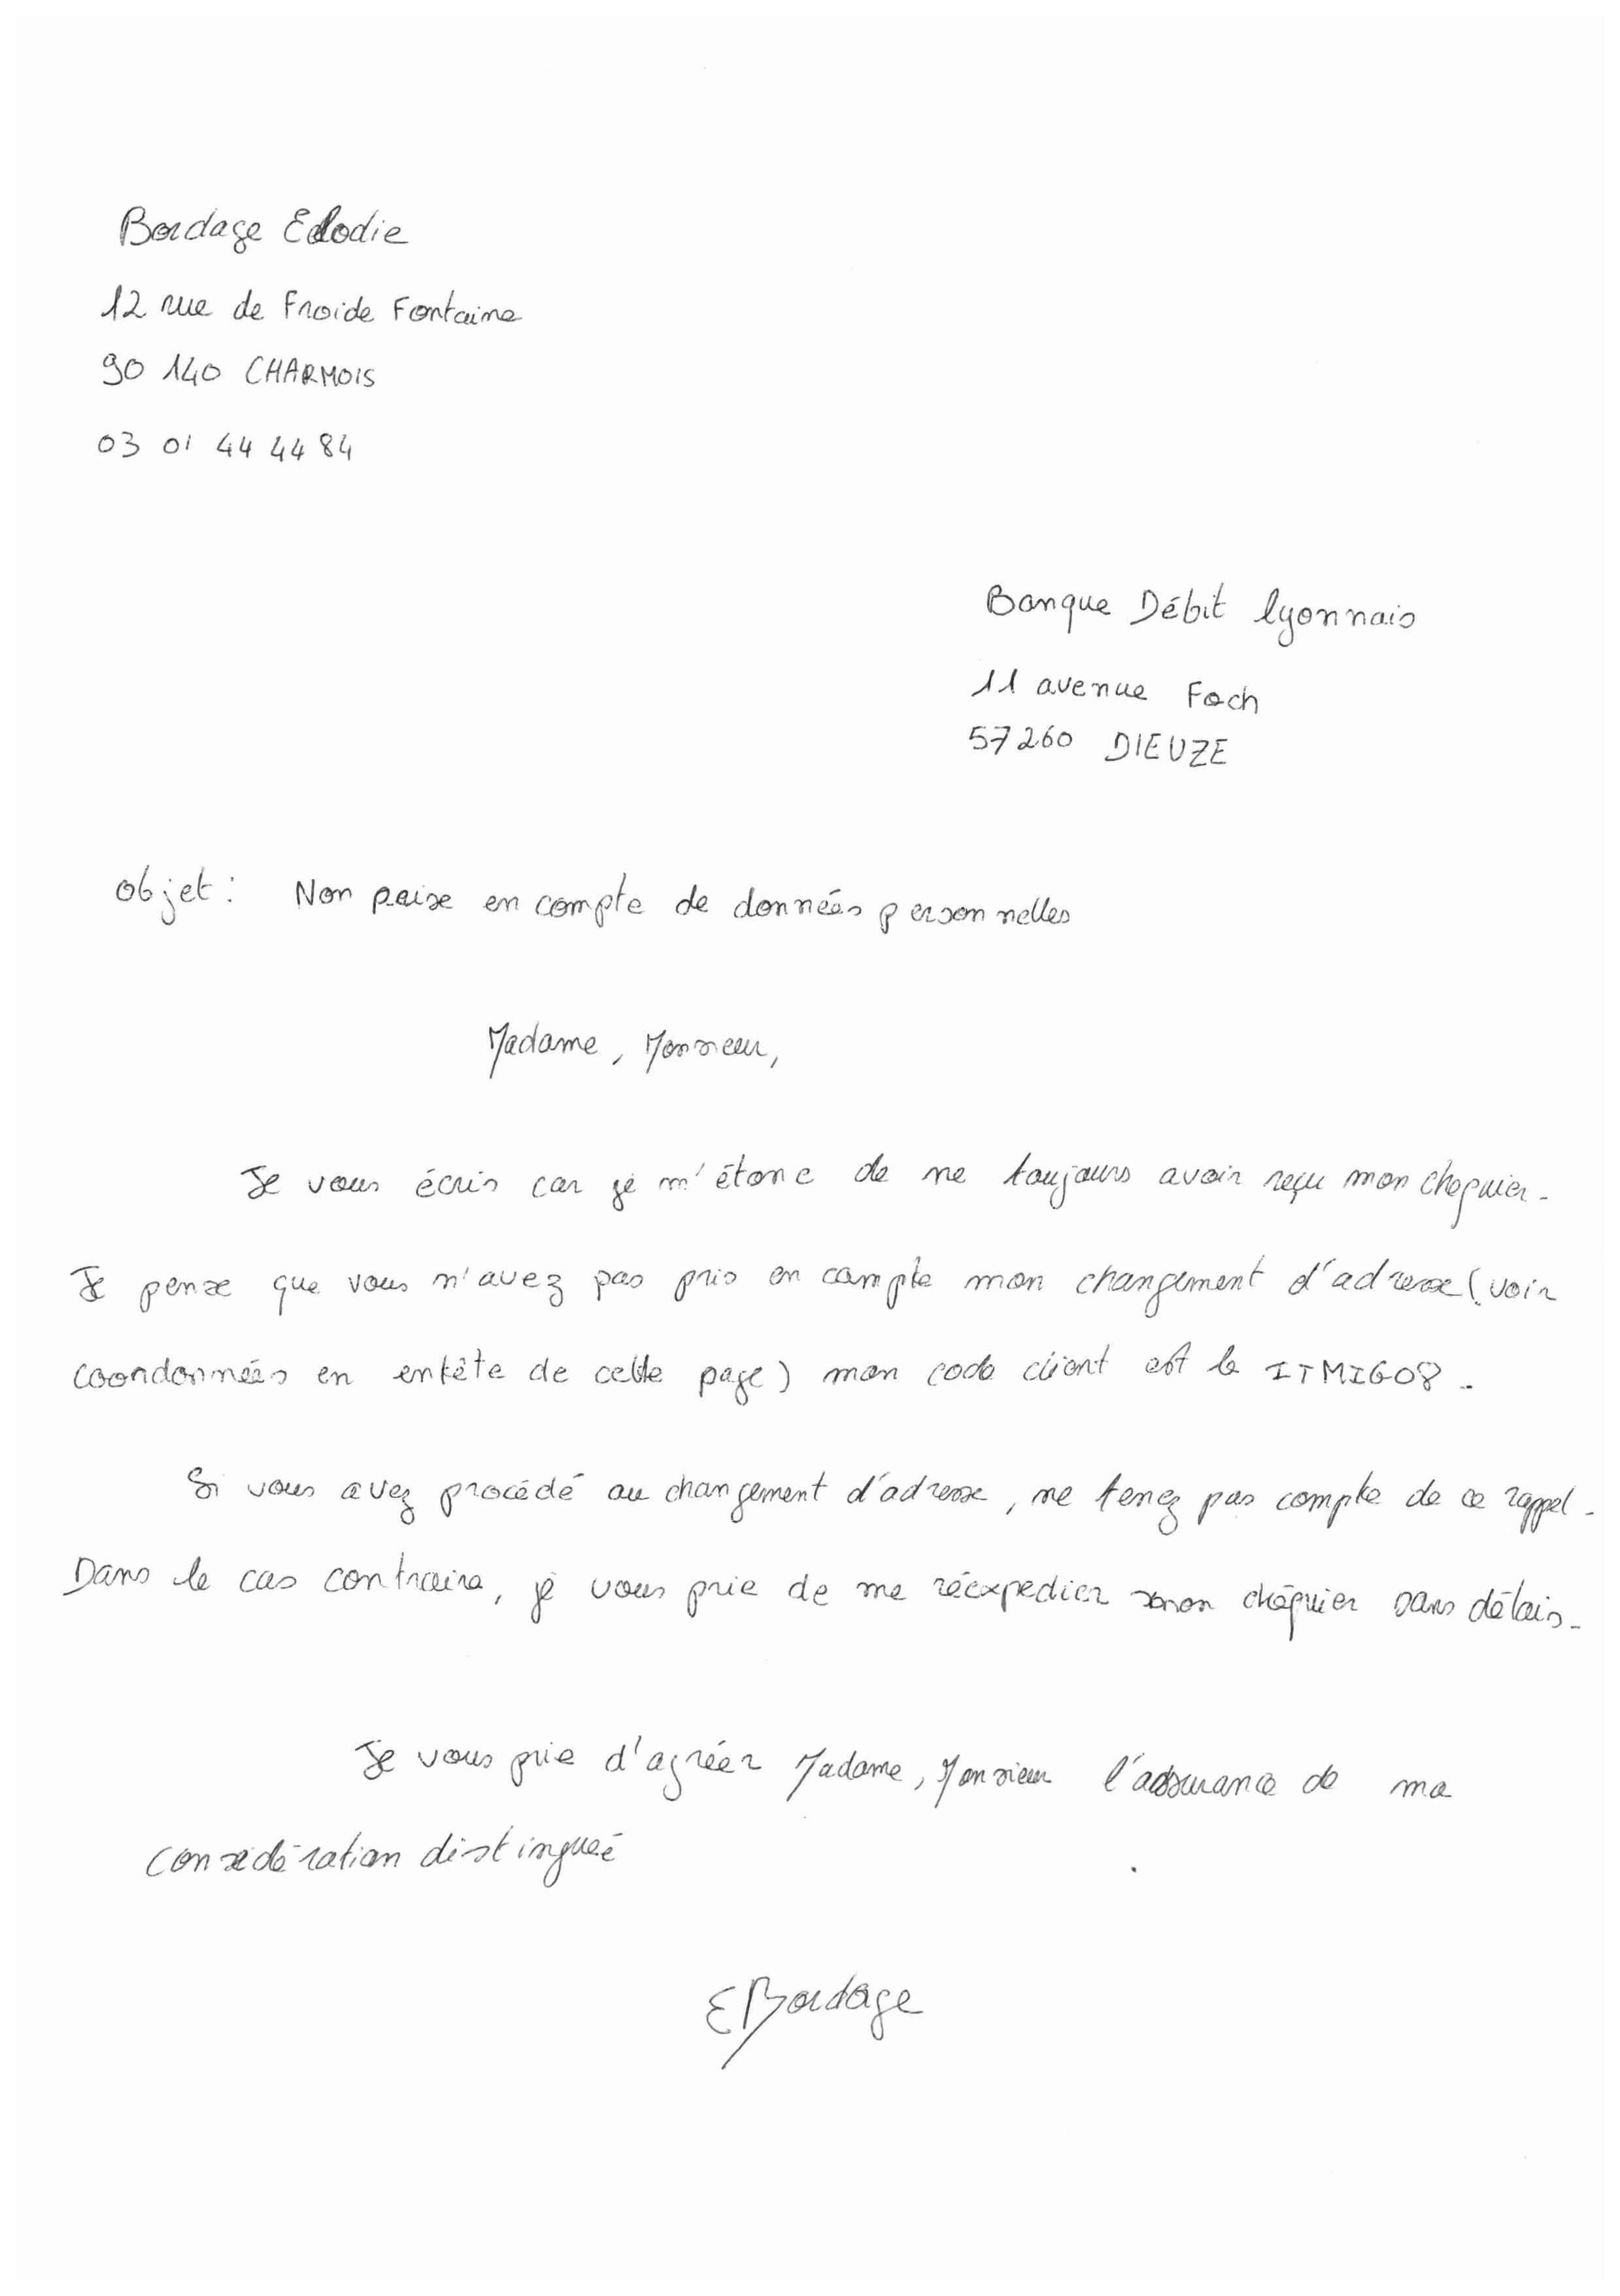 Bordage Elodie
12 rue de Froide Fontaine
90 140 CHARMOIS
03 01 44 44 84
Banque Débit lyonnais
11 avenue Foch
57260 DIEUZE
Objet : Non prise en compte de données personnelles
Madame, Monsieur,
Je vous écris car je m'étone de ne toujours avoir reçu mon chequier.
Je pense que vous n'avez pas pris en compte mon changement d'adresse (voir
coordonnées en entête de cette page) mon code client est le ITMIG08.
Si vous avez procédé au changement d'adresse, ne tenez pas compte de ce rappel.
Dans le cas contraire, je vous prie de me réexpedier mon chéquier sans délais.
Je vous prie d'agréer Madame, Monsieur l'assurance de ma
considération distinguée
EBordage